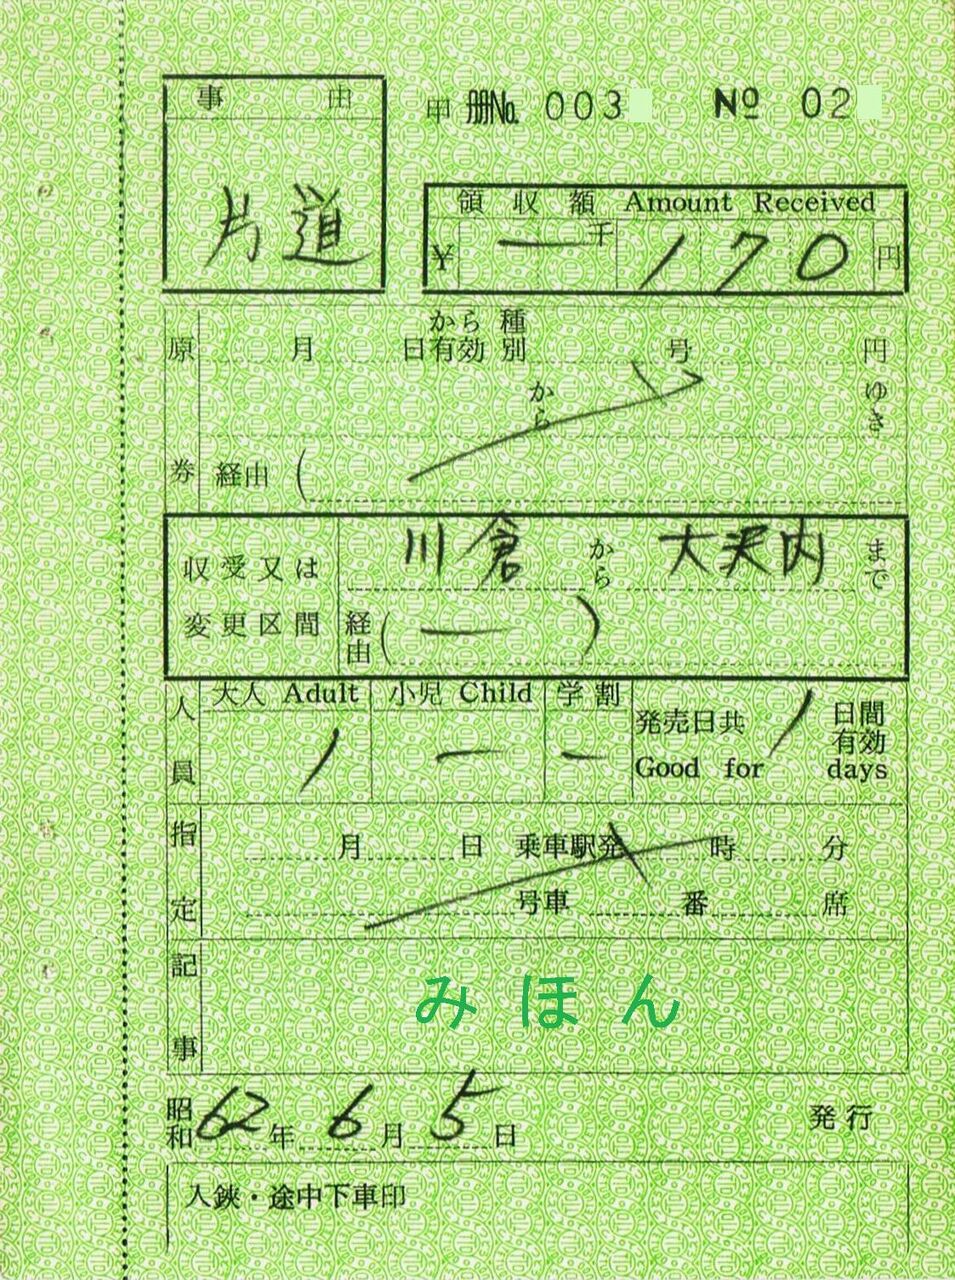 事由
甲 冊No. 003 No 02
片道
領収額 Amount Received
¥ 一 千 170 円
原券
月 日から有効 種別 号 円
から ゆき
経由 (
収受又は変更区間
川倉 から 大沢内 まで
経由 ( 一 )
人員
大人 Adult 小児 Child 学割
1 一 一
発売日共 1 日間有効
Good for days
指定
月 日 乗車駅発 時 分
号車 番 席
記事
みほん
昭和 62年 6月 5日 発行
入鋏・途中下車印